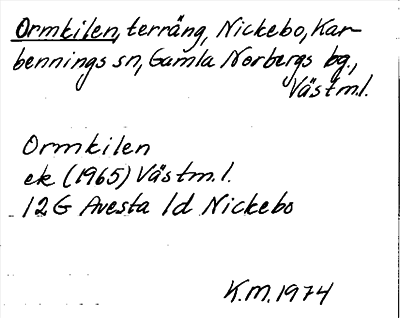 Ormkilen, terräng, Nickebo, Kar-
bennings sn, Gamla Norbergs bg.,
Västml.
Ormkilen
ek (1965) Västm.l.
12G Avesta 1d Nickebo
K.M. 1974